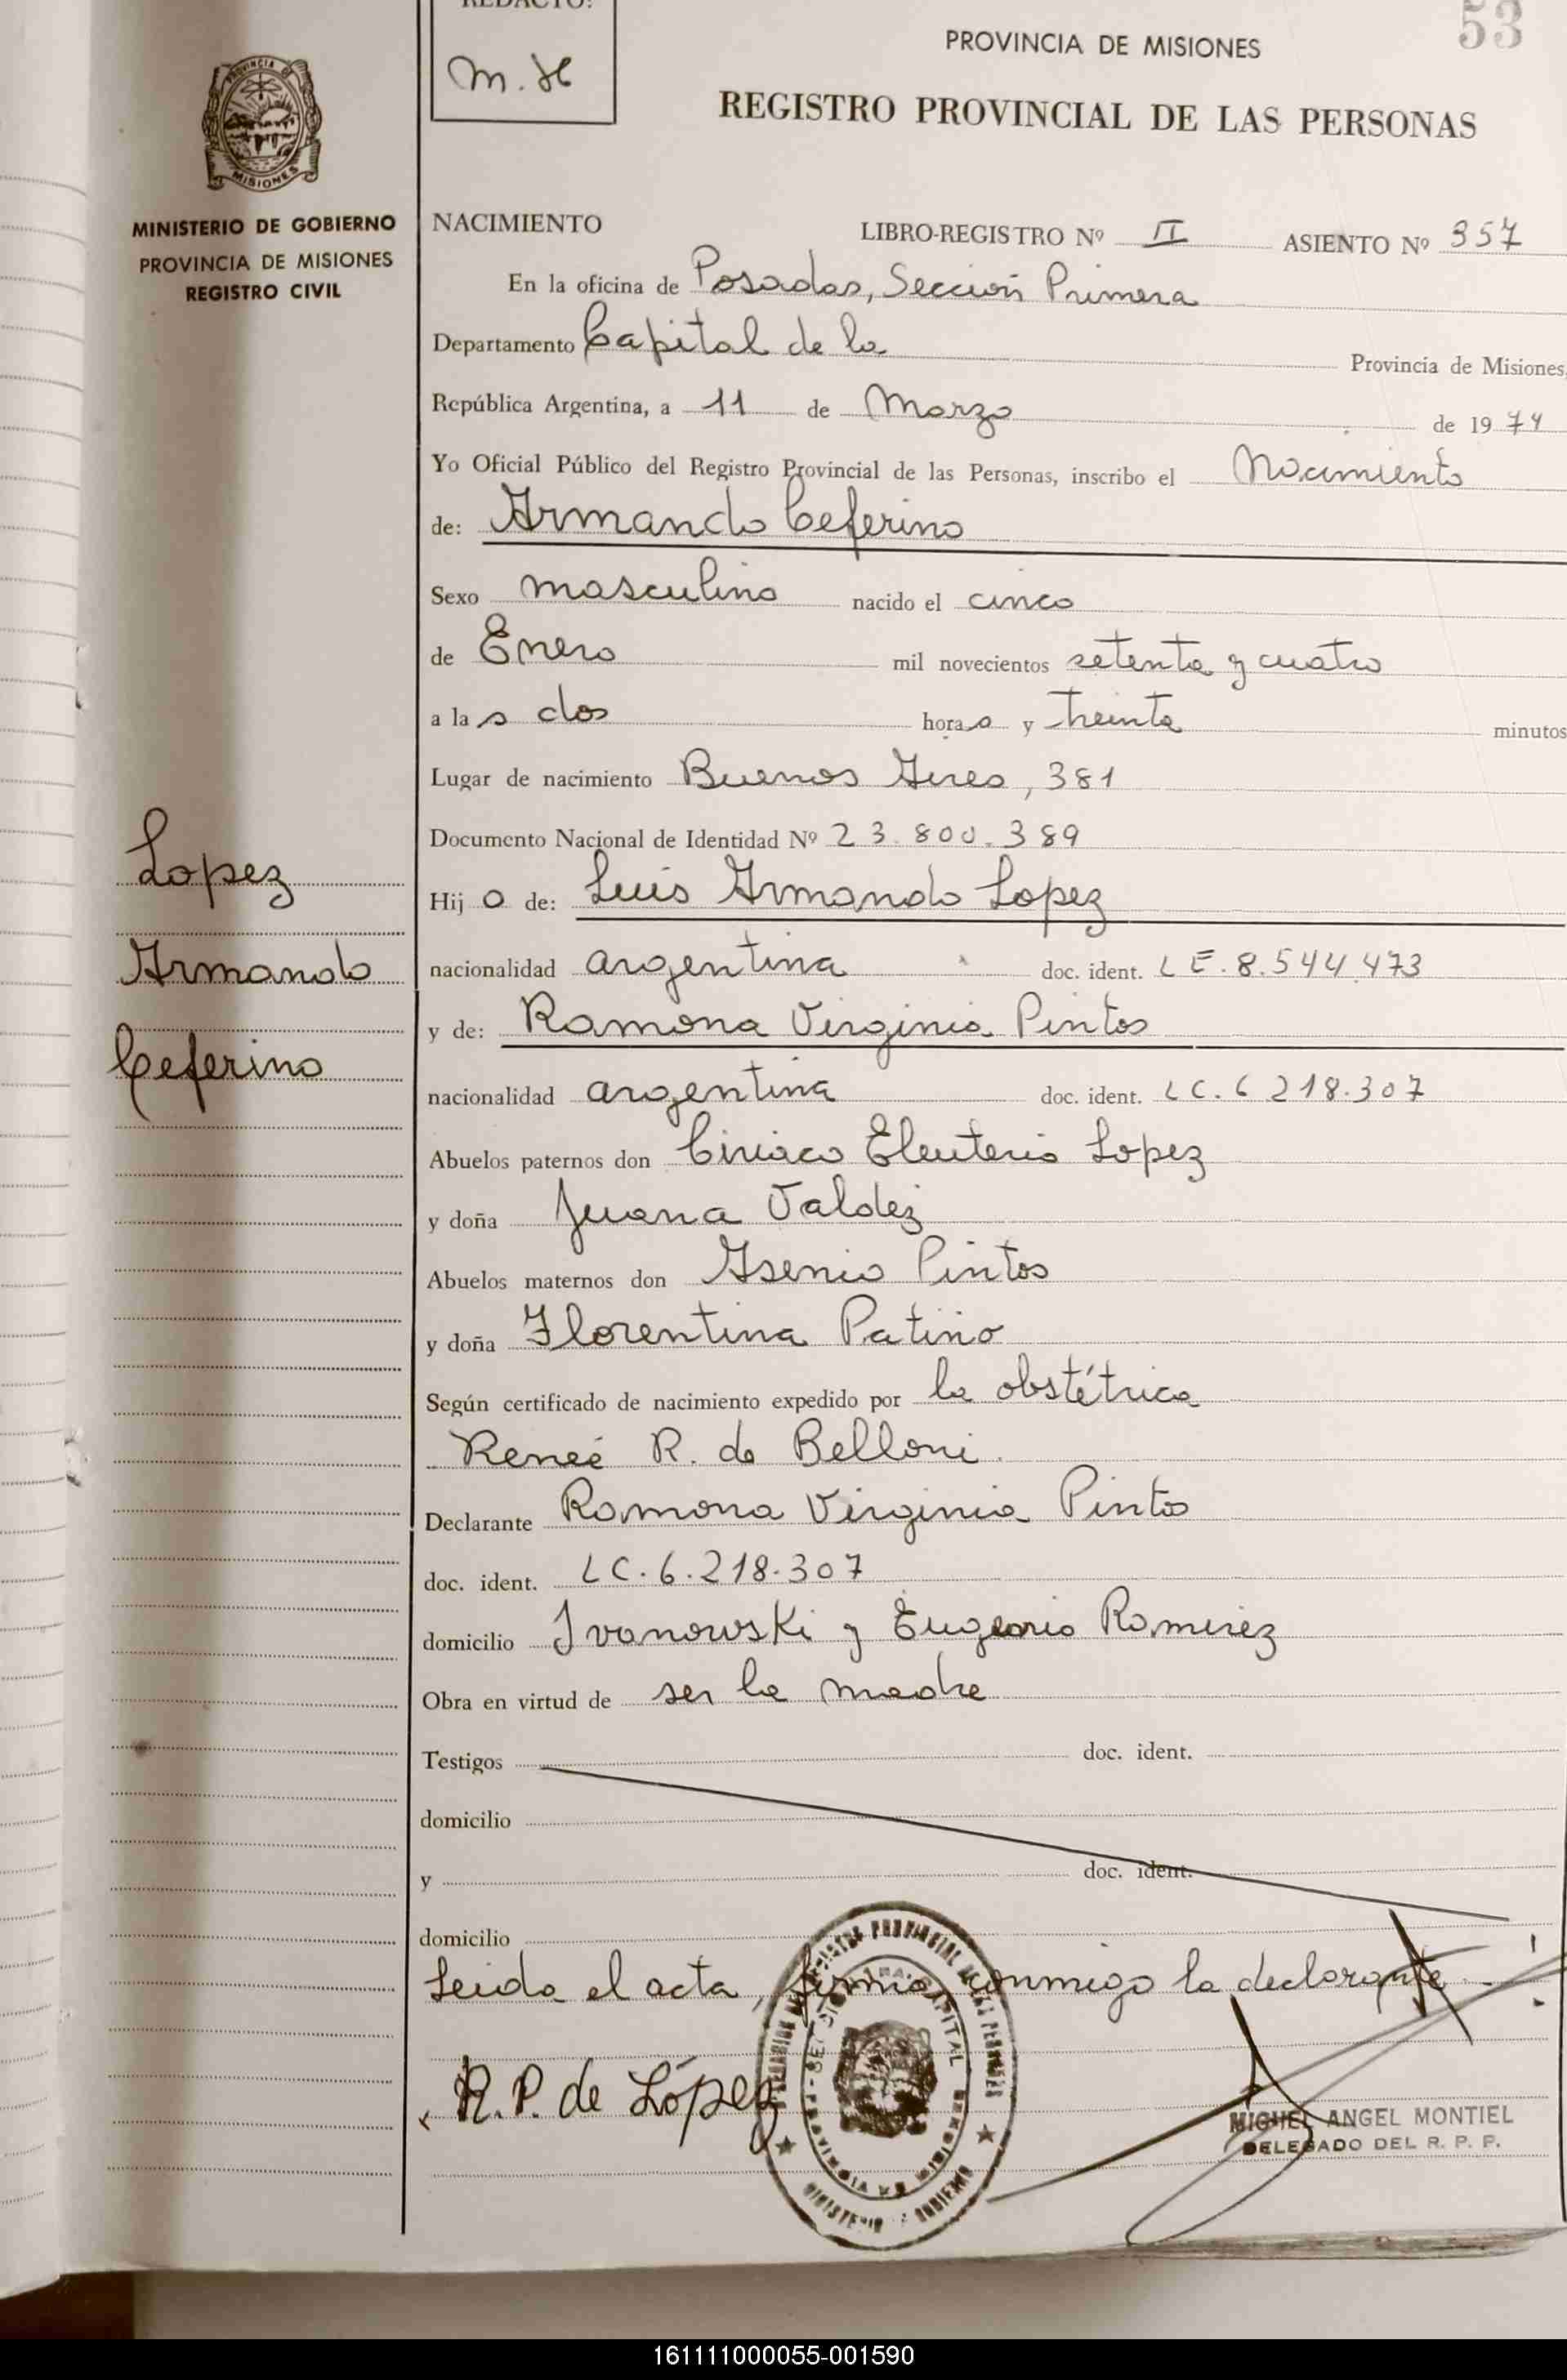 REDACTO:
M. H
53
PROVINCIA DE MISIONES
REGISTRO PROVINCIAL DE LAS PERSONAS
MISIONES
MINISTERIO DE GOBIERNO
PROVINCIA DE MISIONES
REGISTRO CIVIL
NACIMIENTO LIBRO-REGISTRO Nº II ASIENTO Nº 357
En la oficina de Posadas, Sección Primera
Departamento Capital de la Provincia de Misiones,
República Argentina, a 11 de Marzo de 1974
Yo Oficial Público del Registro Provincial de las Personas, inscribo el Nacimiento
de: Armando Ceferino
Sexo masculino nacido el cinco
de Enero mil novecientos setenta y cuatro
a las dos horas y treinta minutos
Lugar de nacimiento Buenos Aires, 381
Documento Nacional de Identidad Nº 23.800.389
Lopez
Armando
Ceferino
Hijo de: Luis Armando Lopez
nacionalidad argentina doc. ident. LE. 8.544.473
y de: Ramona Virginia Pintos
nacionalidad argentina doc. ident. LC. 6 218.307
Abuelos paternos don Ciriaco Eleuterio Lopez
y doña Juana Valdez
Abuelos maternos don Asenio Pintos
y doña Florentina Patiño
Según certificado de nacimiento expedido por la obstétrica
Reneé R. de Belloni.
Declarante Ramona Virginia Pintos
doc. ident. LC. 6.218.307
domicilio Ivanowski y Eugenio Ramirez
Obra en virtud de ser la madre
Testigos doc. ident.
domicilio
y doc. ident.
domicilio
Leida el acta, firma conmigo la declarante
R. P. de López
MIGUEL ANGEL MONTIEL
DELEGADO DEL R. P. P.
161111000055-001590